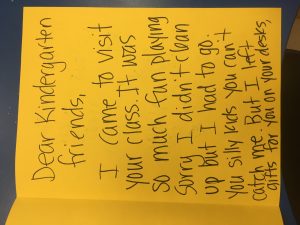 Dear Kindergarten
friends,
I came to visit
your class. It was
so much fun playing
Sorry I didn't clean
up but I had to go.
You silly kids you can't
catch me. But I left
gifts for you on your desks,